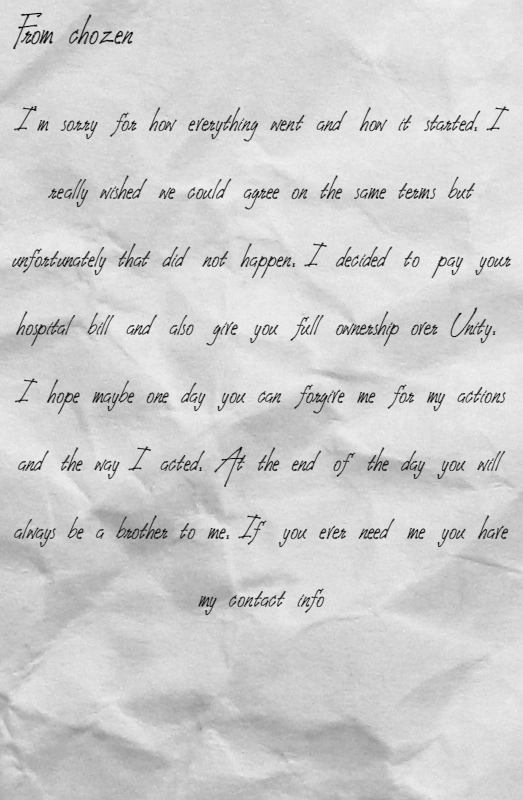 From chozen
I'm sorry for how everything went and how it started. I
really wished we could agree on the same terms but
unfortunately that did not happen. I decided to pay your
hospital bill and also give you full ownership over Unity.
I hope maybe one day you can forgive me for my actions
and the way I acted. At the end of the day you will
always be a brother to me. If you ever need me you have
my contact info